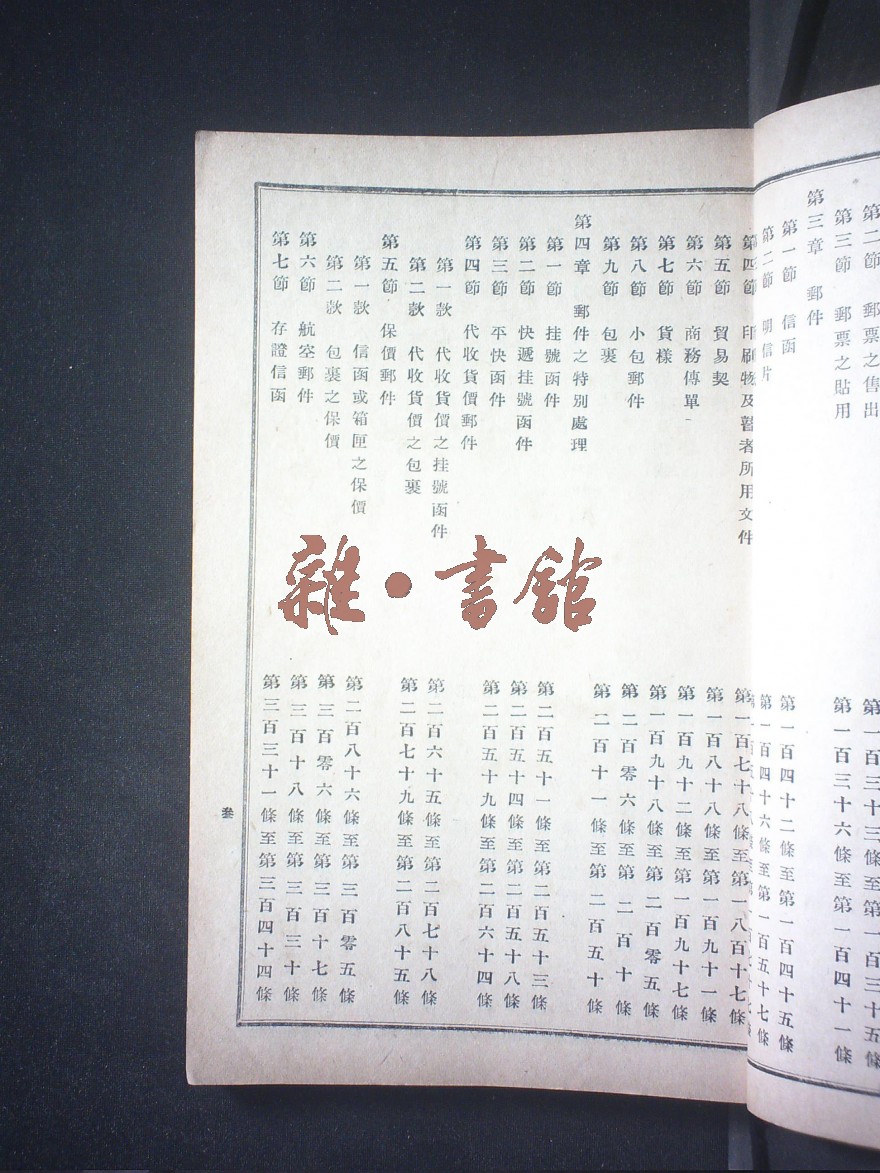 第二節 郵票之售出 第一百三十三條至第一百三十五條
第三節 郵票之貼用 第一百三十六條至第一百四十一條
第三章 郵件
第一節 信函 第一百四十二條至第一百四十五條
第二節 明信片 第一百四十六條至第一百五十七條
第四節 印刷物及瞽者所用文件 第一百七十八條至第一八百十七條
第五節 貿易契 第一百八十八條至第一百九十一條
第六節 商務傳單 第一百九十二條至第一百九十七條
第七節 貨樣 第一百九十八條至第二百零五條
第八節 小包郵件 第二百零六條至第二百十條
第九節 包裹 第二百十一條至第二百五十條
第四章 郵件之特別處理
第一節 挂號函件 第二百五十一條至第二百五十三條
第二節 快遞挂號函件 第二百五十四條至第二百五十八條
第三節 平快函件 第二百五十九條至第二百六十四條
第四節 代收貨價郵件
第一款 代收貨價之挂號函件 第二百六十五條至第二百七十八條
第二款 代收貨價之包裹 第二百七十九條至第二百八十五條
第五節 保價郵件
第一款 信函或箱匣之保價 第二百八十六條至第三百零五條
第二款 包裹之保價 第三百零六條至第三百十七條
第六節 航空郵件 第三百十八條至第三百三十條
第七節 存證信函 第三百三十一條至第三百四十四條
叁
雜·書館